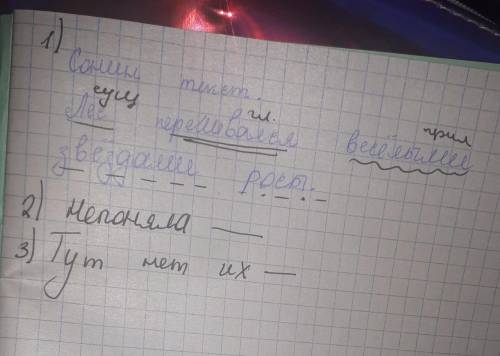 1)
Сонин текст.
сущ гл. прил
Лес переливался весёлыми
звездами росы.
2) Непоняла —
3) Тут нет их —